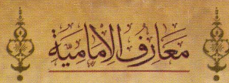 معارف الإمامية